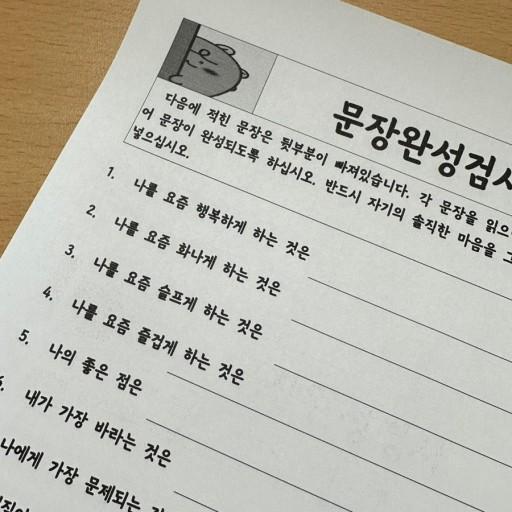 문장완성검사
다음에 적힌 문장은 뒷부분이 빠져있습니다. 각 문장을 읽으
어 문장이 완성되도록 하십시오. 반드시 자기의 솔직한 마음을
넣으십시오.
1. 나를 요즘 행복하게 하는 것은
2. 나를 요즘 화나게 하는 것은
3. 나를 요즘 슬프게 하는 것은
4. 나를 요즘 즐겁게 하는 것은
5. 나의 좋은 점은
6. 내가 가장 바라는 것은
나에게 가장 문제되는